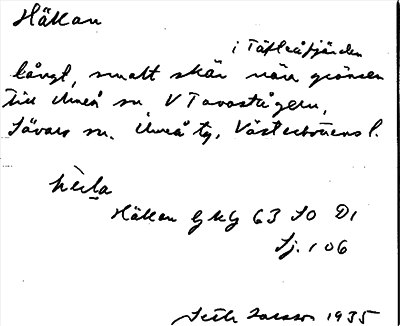 Häkan
i Täfteåfjärden
långt, smalt skär nära gränsen
till Umeå sn V Tavastågern,
Sävars sn. Umeå tg, Västerbottens l.
hèka
Häkan GKG 63 SO D1
Sj. 106
Seth Larsson 1935